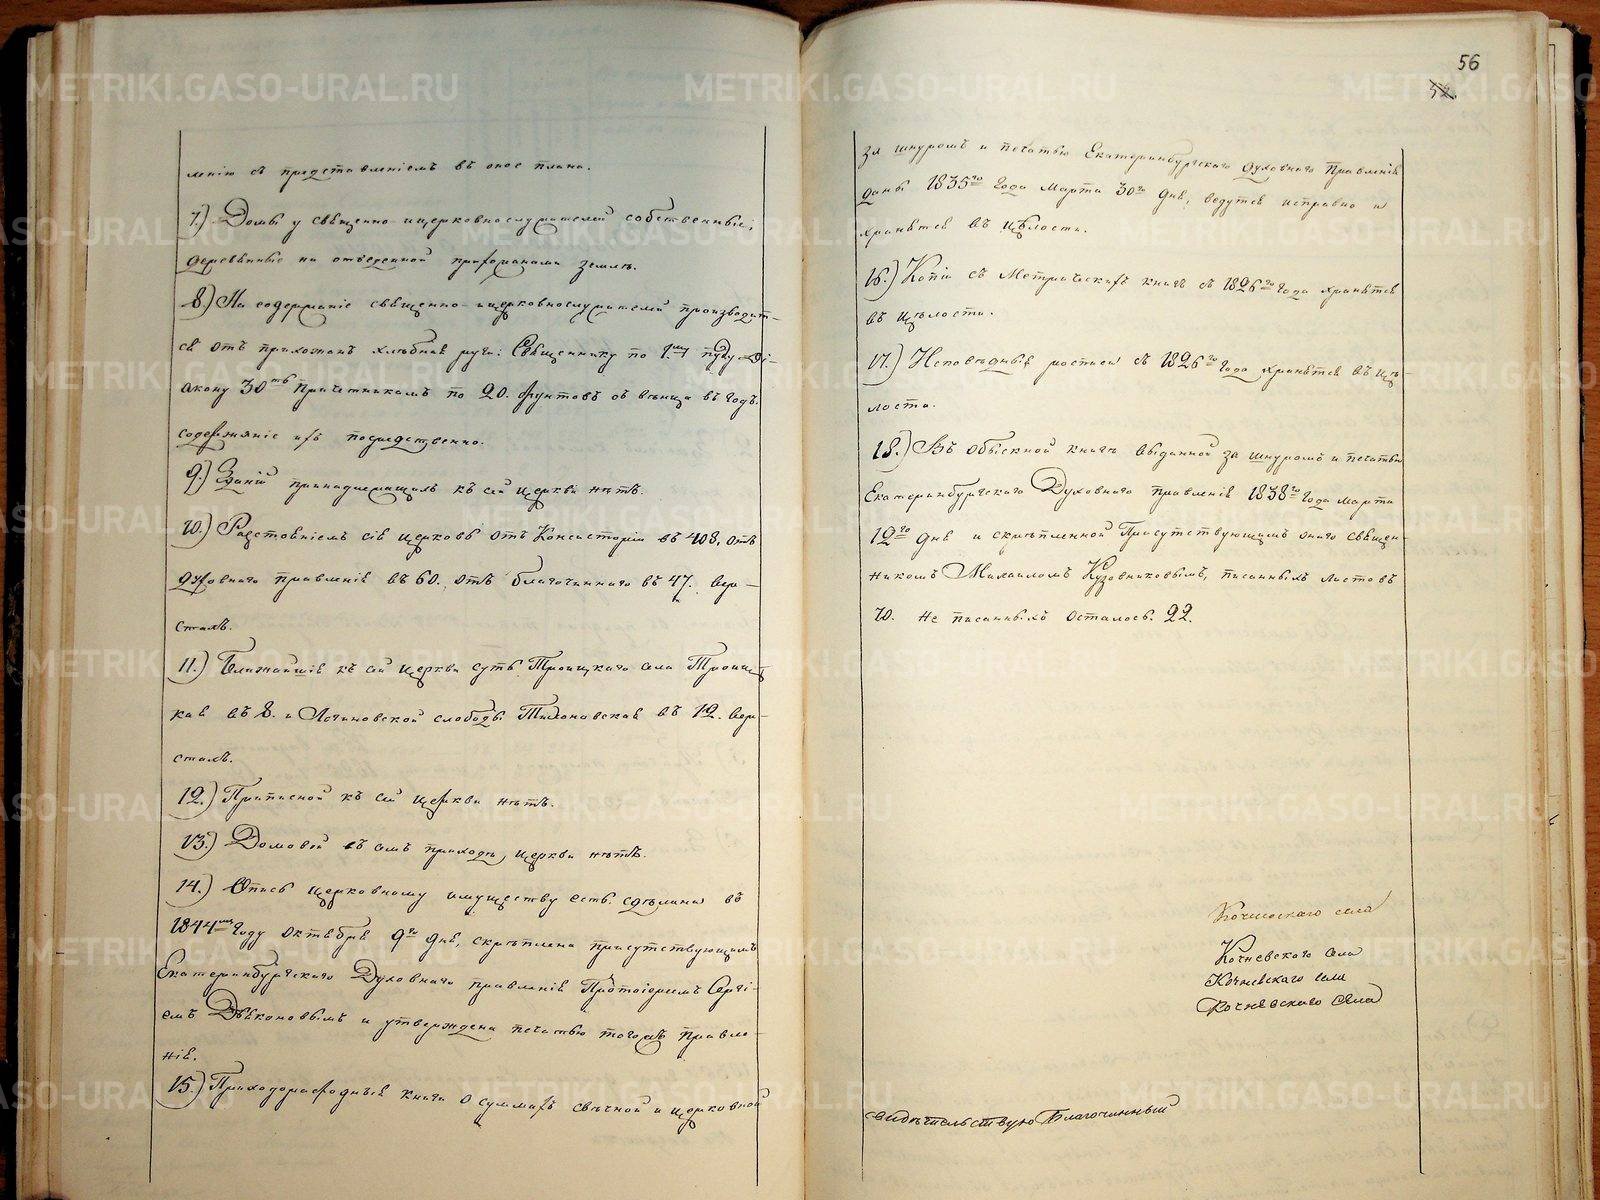 56
52.
лѣнію съ представленіемъ въ оное плана.
7.) Домы у священно-ицерковнослужителей собственные,
деревянные на отведенной прихожанами землѣ.
8.) На содержаніе священно-ицерковнослужителей производит-
ся отъ прихожанъ хлѣбная руга: Священнику по 1му пуду Ді-
акону 30ть Причетникамъ по 20. фунтовъ съ вѣнца въ годъ.
содержаніе ихъ посредственно.
9.) Зданій принадлежащихъ къ сей церкви нѣтъ.
10.) Разстояніемъ сія церковь отъ Консисторіи въ 408, отъ
духовнаго правленія въ 60. отъ благочиннаго въ 47. вер-
стахъ.
11.) Ближайшія къ сей церкви суть Троицкаго села Троицт-
кая въ 8. и Логиновской слободы Тихоновская въ 12. вер-
стахъ.
12.) Приписной къ сей церкви нѣтъ.
13.) Домовой въ семъ приходѣ, церкви нѣтъ.
14.) Опись церковному имуществу есть. сдѣлана въ
1844мъ Году октября 9го дня, скрѣплена присутствующимъ
Екатеринбургскаго Духовнаго правленія Протоіереемъ Сергі-
емъ Дьяконовымъ и утверждена печатью тогожъ Правле-
нія.
15.) Приходорасходныя книги о суммахъ свѣчной и церковной
за шнуромъ и печатью Екатеринбургскаго Духовнаго Правленія
даны 1835го Года Марта 30го дня, ведутся исправно и
хранятся въ цѣлости.
16.) Копіи съ Метрическихъ книгъ съ 1826го года хранятся
въ цѣлости.
17.) Исповѣдныя росписи съ 1826го года хранятся въ цѣ-
лости.
18.) Въ обыскной книгѣ выданной за шнуромъ и печатью
Екатеринбургскаго Духовнаго правленія 1838го Года марта
12го дня и скрѣпленной Присутствующимъ онаго священ-
никомъ Михаиломъ Кузовниковымъ, писанныхъ листовъ
70. Не писанныхъ осталось. 22.
Кочневскаго села
Кочневскаго села
Кочневскаго села
Кочневскаго села
свидѣтельствую Благочинный
METRIKI.GASO-URAL.RU